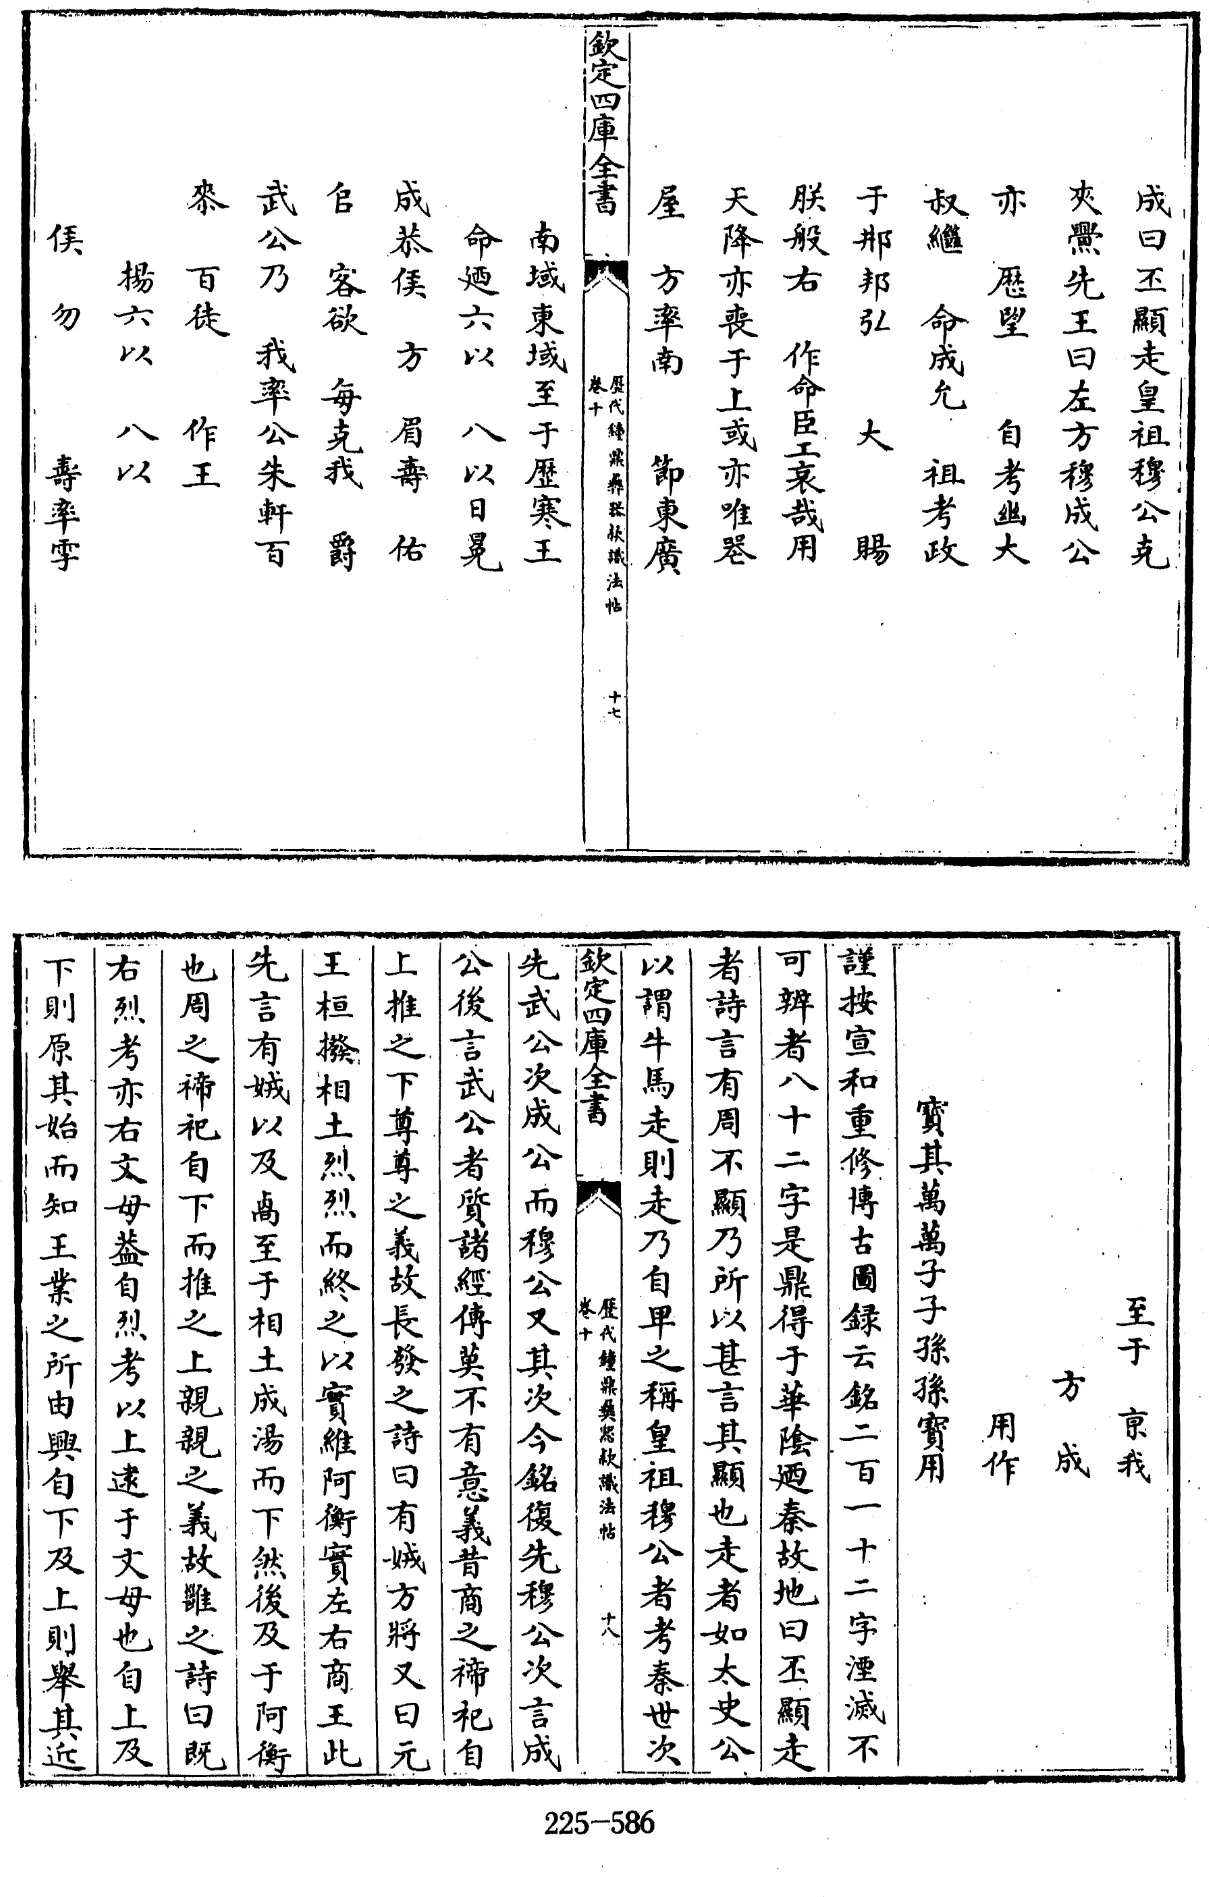 成曰丕顯走皇祖穆公克
夾㬎先王曰左方穆成公
亦　歷望　自考幽大
叔繼　命成允　祖考政
于邢邦弘　大　賜
朕般右　作命臣工哀哉用
天降亦喪于上或亦唯
屋　方率南　節東廣
欽定四庫全書
歷代鐘鼎彝器款識法帖
卷十
十七
南域東域至于歷寒王
命廼六以　八以日晃
成恭侯　方　眉壽　佑
㠯　客欲　每克我　爵
武公乃　我率公朱軒百
　百徒　作王
揚六以　八以
侯　勿　　壽率雩
至于　京我
方　成
用作
寶其萬萬子子孫孫寶用
謹按宣和重修博古圖録云銘二百一十二字湮滅不
可辨者八十二字是鼎得于華隂廼秦故地曰丕顯走
者詩言有周不顯乃所以甚言其顯也走者如太史公
以謂牛馬走則走乃自卑之稱皇祖穆公者考秦世次
欽定四庫全書
歷代鐘鼎彝器款識法帖
卷十
十八
先武公次成公而穆公又其次今銘復先穆公次言成
公後言武公者質諸經傳莫不有意義昔商之禘祀自
上推之下尊尊之義故長發之詩曰有娀方將又曰元
王桓撥相土烈烈而終之以實維阿衡實左右商王此
先言有娀以及卨至于相土成湯而下然後及于阿衡
也周之禘祀自下而推之上親親之義故雝之詩曰既
右烈考亦右文母葢自烈考以上逮于文母也自上及
下則原其始而知王業之所由興自下及上則舉其近
225-586